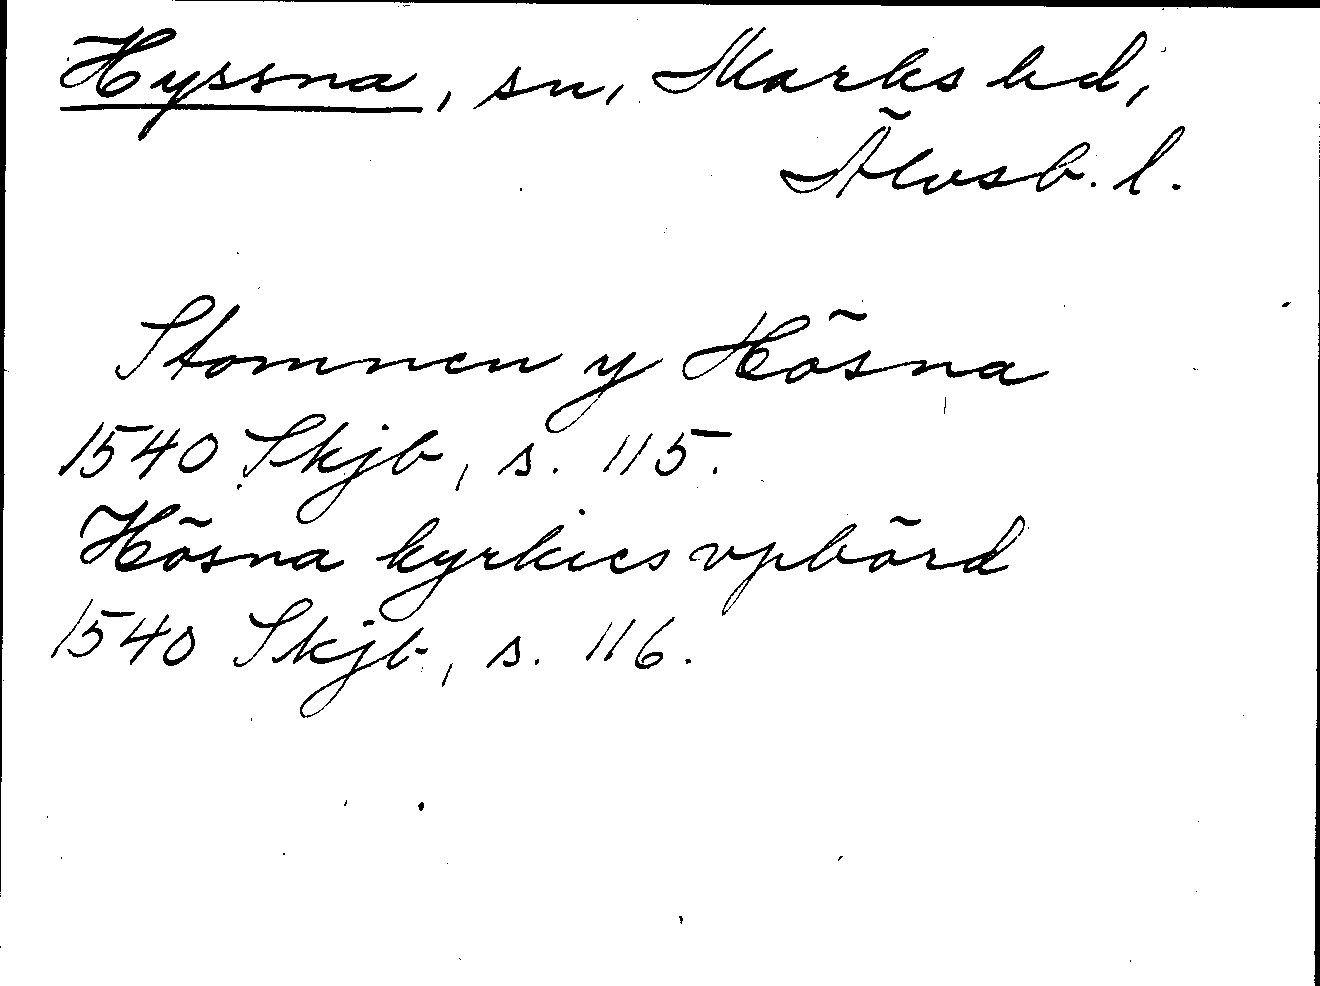 Hyssna, sn, Marks hd,
Älvsb. l.
Stomnen y Hösna
1540 Skjb, s. 115.
Hösna kyrkies vpbörd
1540 Skjb, s. 116.